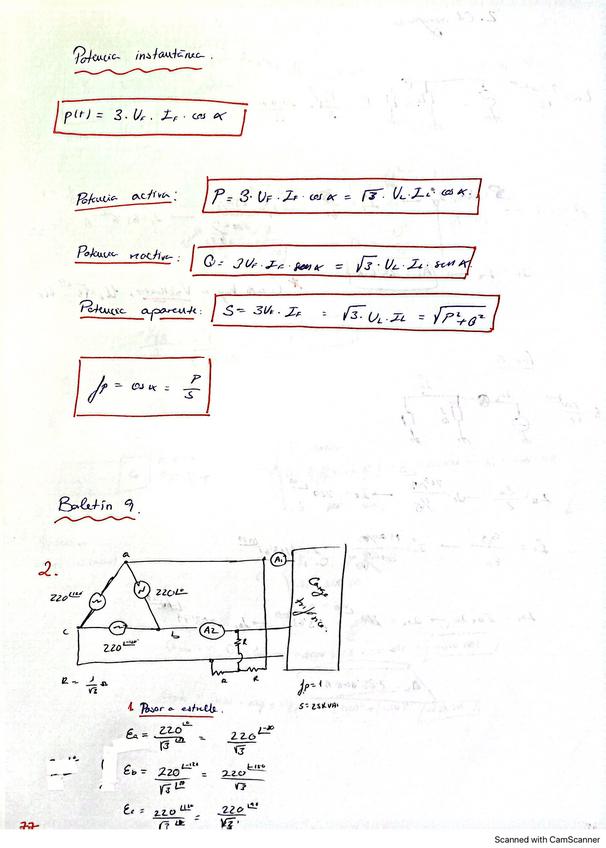 Potencia instantánea.
p(t) = 3 · U_F · I_F · cos α
Potencia activa: P = 3 · U_F · I_F · cos α = √3 · U_L · I_L · cos α.
Potencia reactiva: Q = 3U_F · I_F · sen α = √3 · U_L · I_L · sen α
Potencia aparente: S = 3U_F · I_F = √3 · U_L · I_L = √P²+Q²
fp = cos α = P/S
Boletín 9.
2.
a
A1
220
220∠0
Carga
trifásica.
c
b
A2
R
220
R
R
R = 1/√3 Ω
fp = 1
1 Pasar a estrella.
Ea = 220∠0 / √3 = 220∠-30 / √3
Eb = 220∠-120 / √3 = 220∠-150 / √3
Ec = 220 / √3 = 220 / √3
77
Scanned with CamScanner